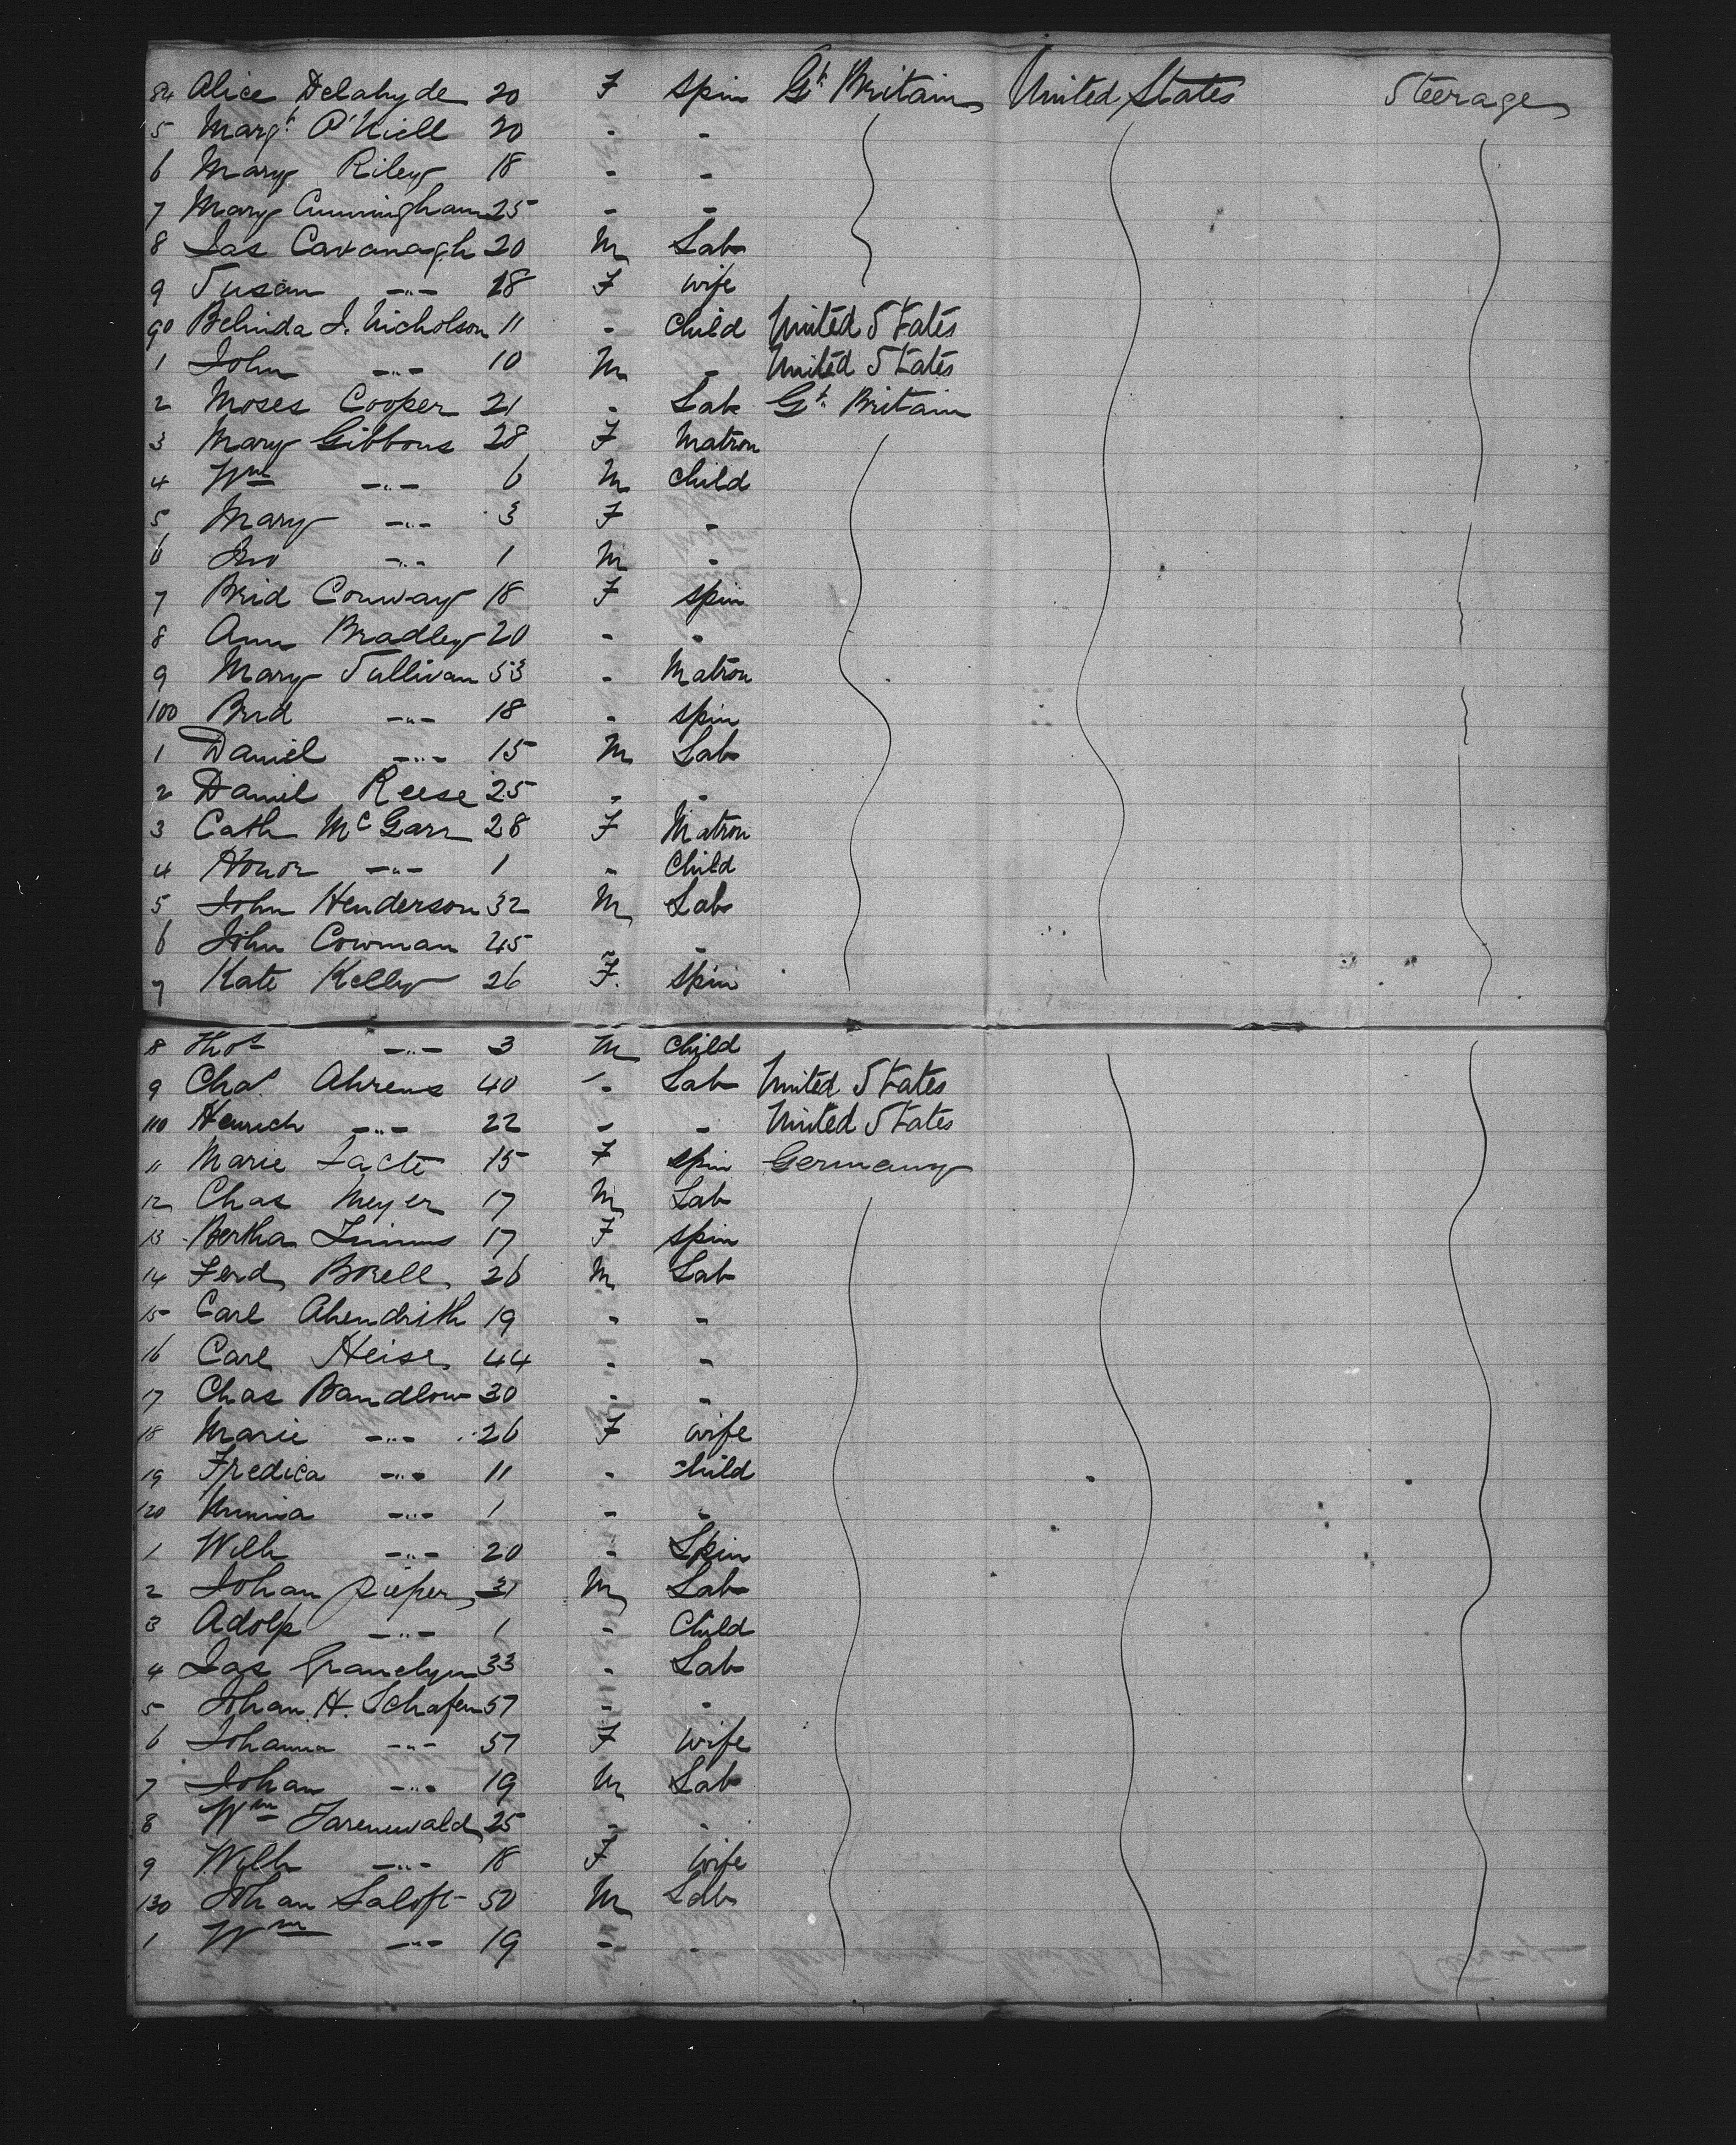 84 Alice Delahyde 20 F spin Gt. Britain United States Steerage
5 Margt. O'Niell 20 - -
6 Mary Riley 18 - -
7 Mary Cunningham 25 - -
8 Jas Cavanagh 20 M Lab
9 Susan -"- 18 F wife
90 Belinda J. Nicholson 11 - child United States
1 John -"- 10 M - United States
2 Moses Cooper 21 - Lab Gt. Britain
3 Mary Gibbons 28 F Matron
4 Wm -"- 6 M child
5 Mary -"- 3 F -
6 Jno -"- 1 M -
7 Brid Conway 18 F spin
8 Ann Bradley 20 - -
9 Mary Sullivan 53 - Matron
100 Brid -"- 18 - spin
1 Daniel -"- 15 M Lab
2 Daniel Reese 25 - -
3 Cath McGarr 28 F Matron
4 Honor -"- 1 - Child
5 John Henderson 32 M Lab
6 John Cowman 45 - -
7 Kate Kelly 26 F. spin
8 Thos -"- 3 M child
9 Chas. Ahrens 40 - Lab United States
110 Heinrich -"- 22 - - United States
11 Marie 15 F spin Germany
12 Chas Meyer 17 M Lab
13 Bertha 17 F spin
14 Ferd Brell 26 M Lab
15 Carl 19 - -
16 Carl Heise 44 - -
17 Chas Bandlow 30 - -
18 Marie -"- 26 F wife
19 Fredica -"- 11 - child
120 -"- 1 - -
1 Wilh -"- 20 - Spin
2 Johan Pieper 31 M Lab
3 Adolp -"- 1 - Child
4 Jas 33 - Lab
5 Johan H. Schafen 57 - -
6 Johanna -"- 57 F wife
7 Johan -"- 19 M Lab
8 Wm 25 - -
9 Wilh -"- 18 F wife
130 Johan Saloft 50 M Lab
1 Wm -"- 19 - -